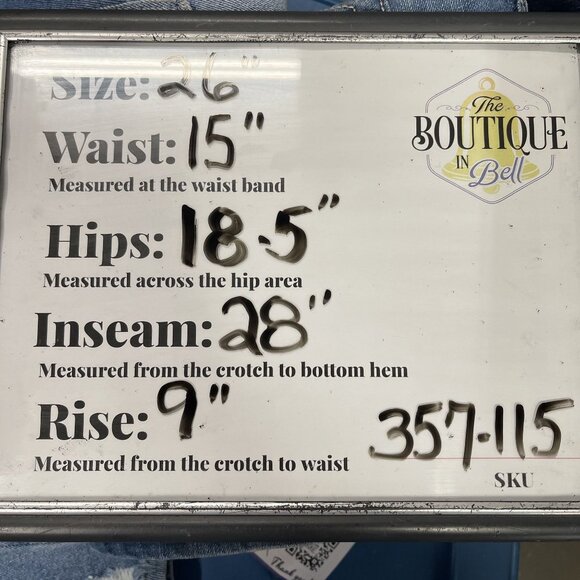 Size: 26"
The
BOUTIQUE
IN
Bell
Waist: 15"
Measured at the waist band
Hips: 18.5"
Measured across the hip area
Inseam: 28"
Measured from the crotch to bottom hem
Rise: 9"
Measured from the crotch to waist
357-115
SKU
Thank